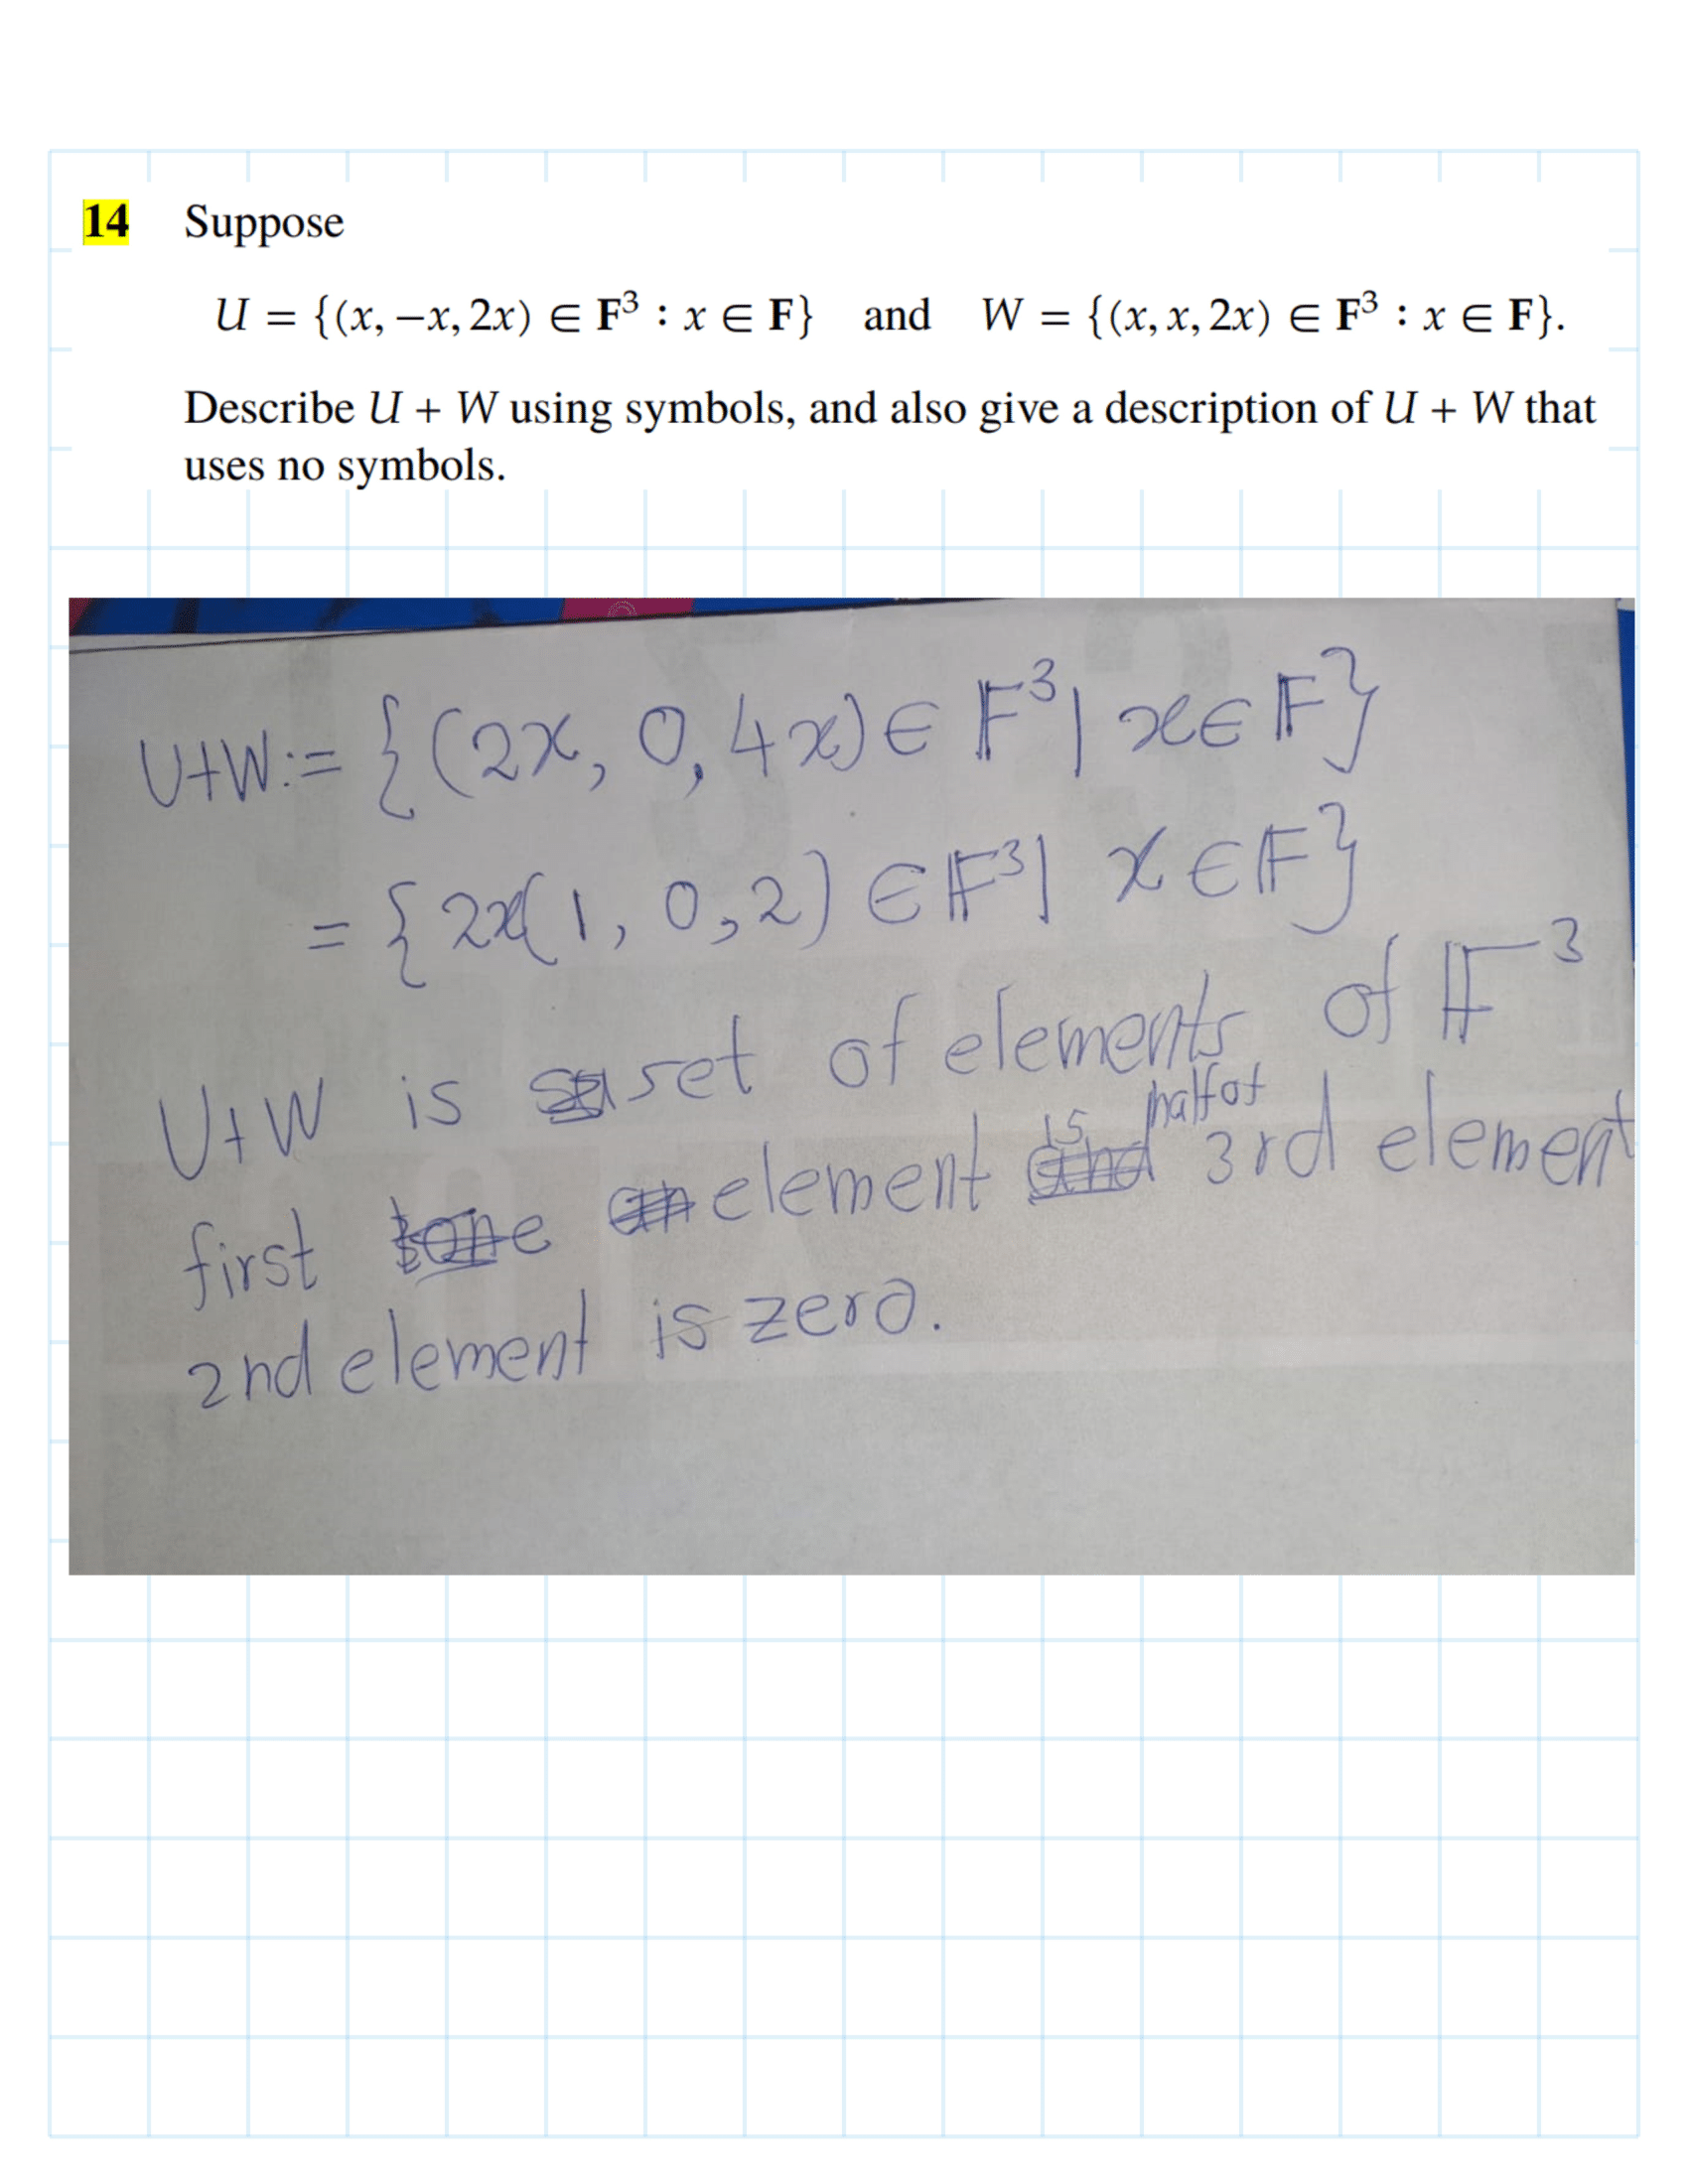 14 Suppose
U = {(x, −x, 2x) ∈ F³ : x ∈ F} and W = {(x, x, 2x) ∈ F³ : x ∈ F}.
Describe U + W using symbols, and also give a description of U + W that
uses no symbols.
U+W:= {(2x, 0, 4x) ∈ F³ | x ∈ F}
= {2x(1, 0, 2) ∈ F³ | x ∈ F}
U+W is set of elements of F³
first element is half of 3rd element
2nd element is zero.